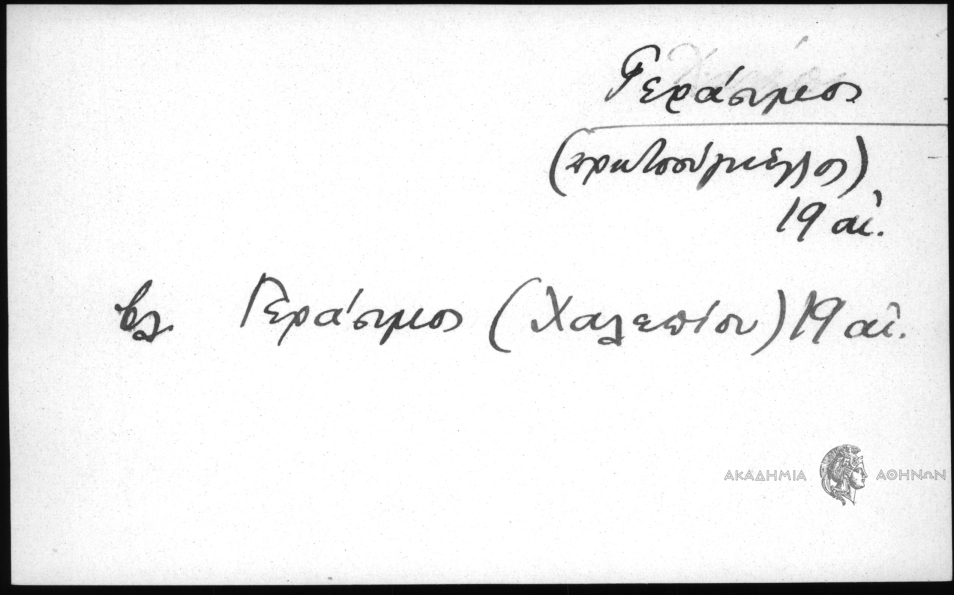 Γεράσιμος
(πρωτοσύγκελλος)
19 αἰ.
βλ. Γεράσιμος (Χαλεπίου) 19 αἰ.
ΑΚΑΔΗΜΙΑ ΑΘΗΝΩΝ